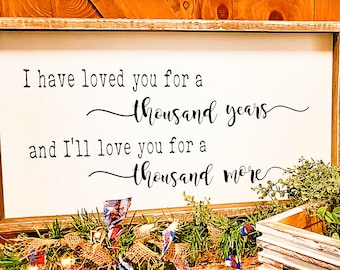 I have loved you for a
thousand years
and I'll love you for a
thousand more